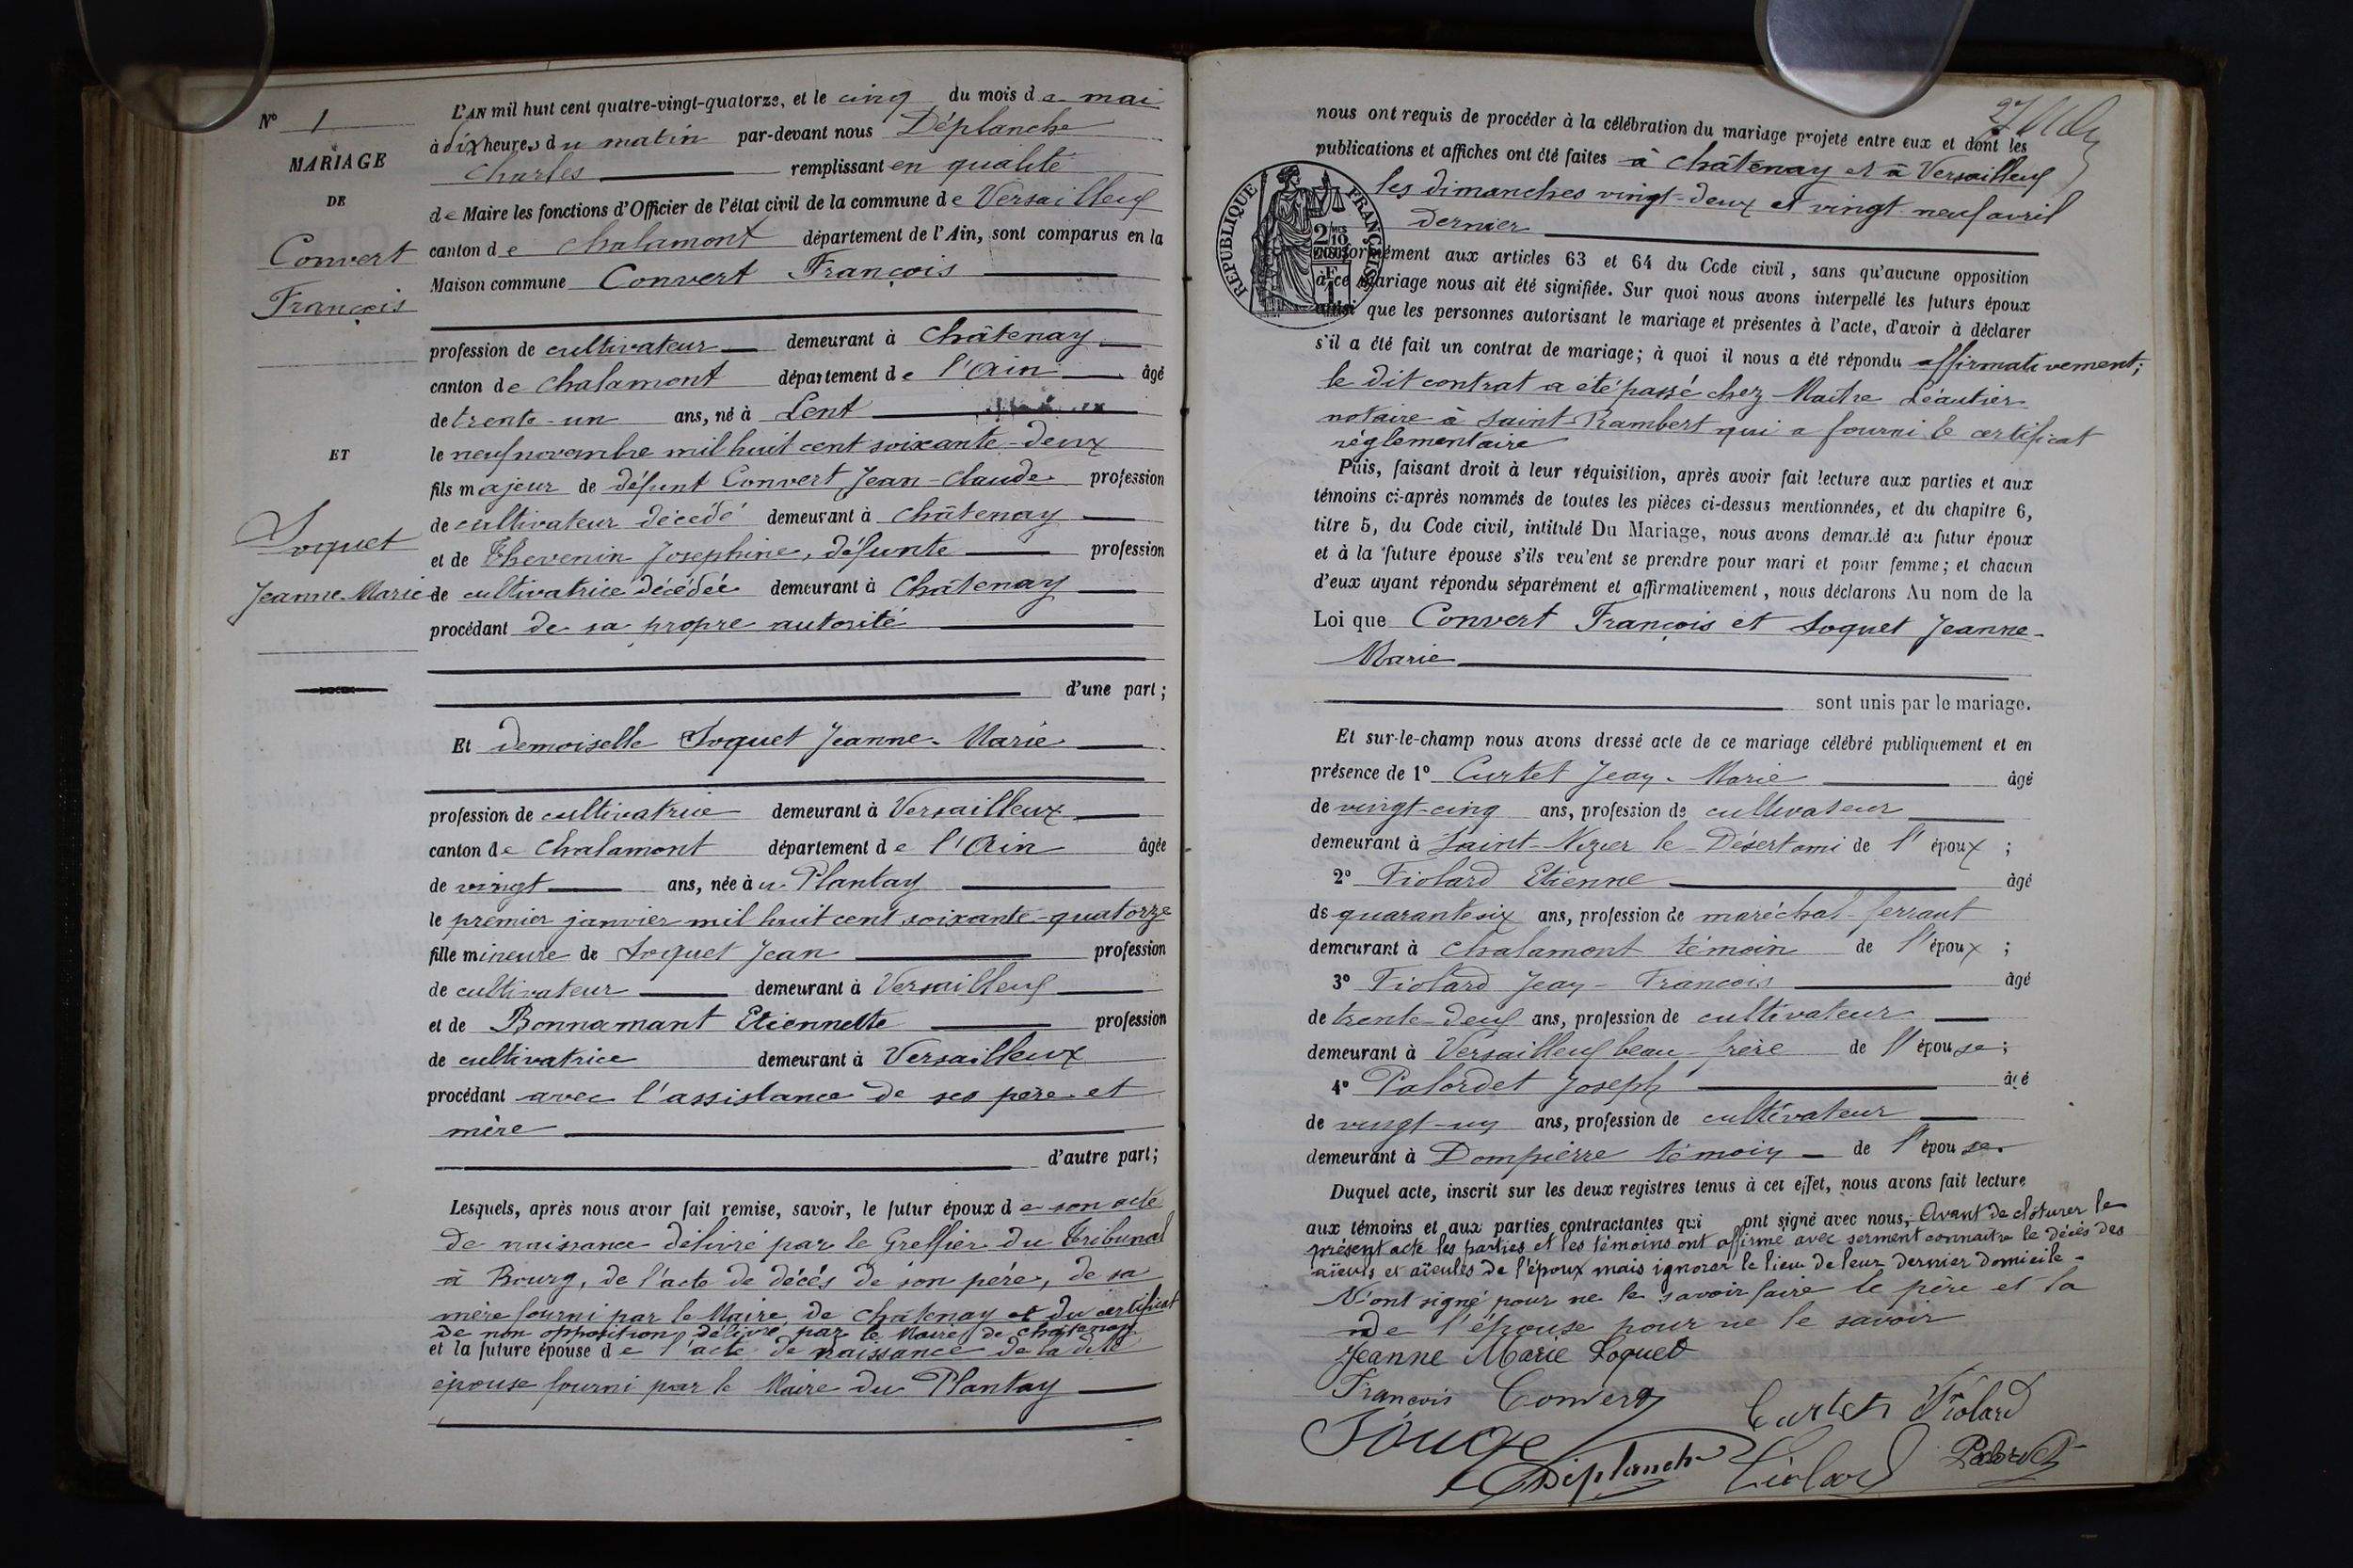 N° 1
MARIAGE
DE
Convert
François
ET
Soquet
Jeanne-Marie
L'AN mil huit cent quatre-vingt-quatorze, et le cinq du mois de mai
à dix heures du matin par-devant nous Déplanche
Charles remplissant en qualité
de Maire les fonctions d'Officier de l'état civil de la commune de Versailleux
canton de Chalamont département de l'Ain, sont comparus en la
Maison commune Convert François
profession de cultivateur demeurant à Châtenay
canton de Chalamont département de l'Ain âgé
de trente-un ans, né à Lent
le neuf novembre mil huit cent soixante-deux
fils majeur de défunt Convert Jean-Claude profession
de cultivateur décédé demeurant à Châtenay
et de Thevenin Josephine, défunte profession
de cultivatrice décédée demeurant à Châtenay
procédant de sa propre autorité
d'une part;
Et demoiselle Soquet Jeanne-Marie
profession de cultivatrice demeurant à Versailleux
canton de Chalamont département de l'Ain âgée
de vingt ans, née à u Plantay
le premier janvier mil huit cent soixante-quatorze
fille mineure de Soquet Jean profession
de cultivateur demeurant à Versailleux
et de Bonnamant Etiennette profession
de cultivatrice demeurant à Versailleux
procédant avec l'assistance de ses père et
mère
d'autre part;
Lesquels, après nous avoir fait remise, savoir, le futur époux de son acte
de naissance délivré par le Greffier du Tribunal
à Bourg, de l'acte de décés de son père, de sa
mère fourni par le Maire de Chatenay et du certificat
de non opposition délivré par le Maire de Chatenay
et la future épouse de l'acte de naissance de la dite
épouse fourni par le Maire du Plantay
nous ont requis de procéder à la célébration du mariage projeté entre eux et dont les
publications et affiches ont été faites à Châtenay et à Versailleux
les dimanches vingt-deux et vingt-neuf avril
dernier
RÉPUBLIQUE FRANÇAISE
conformément aux articles 63 et 64 du Code civil, sans qu'aucune opposition
à ce mariage nous ait été signifiée. Sur quoi nous avons interpellé les futurs époux
ainsi que les personnes autorisant le mariage et présentes à l'acte, d'avoir à déclarer
s'il a été fait un contrat de mariage; à quoi il nous a été répondu affirmativement;
le dit contrat a été passé chez Maître Léautier
notaire à Saint-Rambert qui a fourni le certificat
réglementaire
Puis, faisant droit à leur réquisition, après avoir fait lecture aux parties et aux
témoins ci-après nommés de toutes les pièces ci-dessus mentionnées, et du chapitre 6,
titre 5, du Code civil, intitulé Du Mariage, nous avons demandé au futur époux
et à la future épouse s'ils veu'ent se prendre pour mari et pour femme; et chacun
d'eux ayant répondu séparément et affirmativement, nous déclarons Au nom de la
Loi que Convert François et Soquet Jeanne-
Marie
sont unis par le mariage.
Et sur-le-champ nous avons dressé acte de ce mariage célébré publiquement et en
présence de 1° Curtet Jean-Marie âgé
de vingt-cinq ans, profession de cultivateur
demeurant à Saint-Nizier le-Désert ami de l'époux;
2° Fiolard Etienne âgé
de quarante six ans, profession de maréchal-ferrant
demeurant à Chalamont témoin de l'époux;
3° Fiolard Jean-François âgé
de trente-deux ans, profession de cultivateur
demeurant à Versailleux beau-frère de l'épouse;
4° Palordet Joseph âgé
de vingt-un ans, profession de cultivateur
demeurant à Dompierre témoin de l'épouse
Duquel acte, inscrit sur les deux registres tenus à cet effet, nous avons fait lecture
aux témoins et aux parties contractantes qui ont signé avec nous, Avant de clôturer le
présent acte les parties et les témoins ont affirmé avec serment connaître le décès des
aïeuls et aïeules de l'époux mais ignorer le lieu de leur dernier domicile
N'ont signé pour ne le savoir faire le père et la
de l'épouse pour ne le savoir
Jeanne Marie Soquet
François Convert
Curtet Fiolard
Déplanche Fiolard Palordet